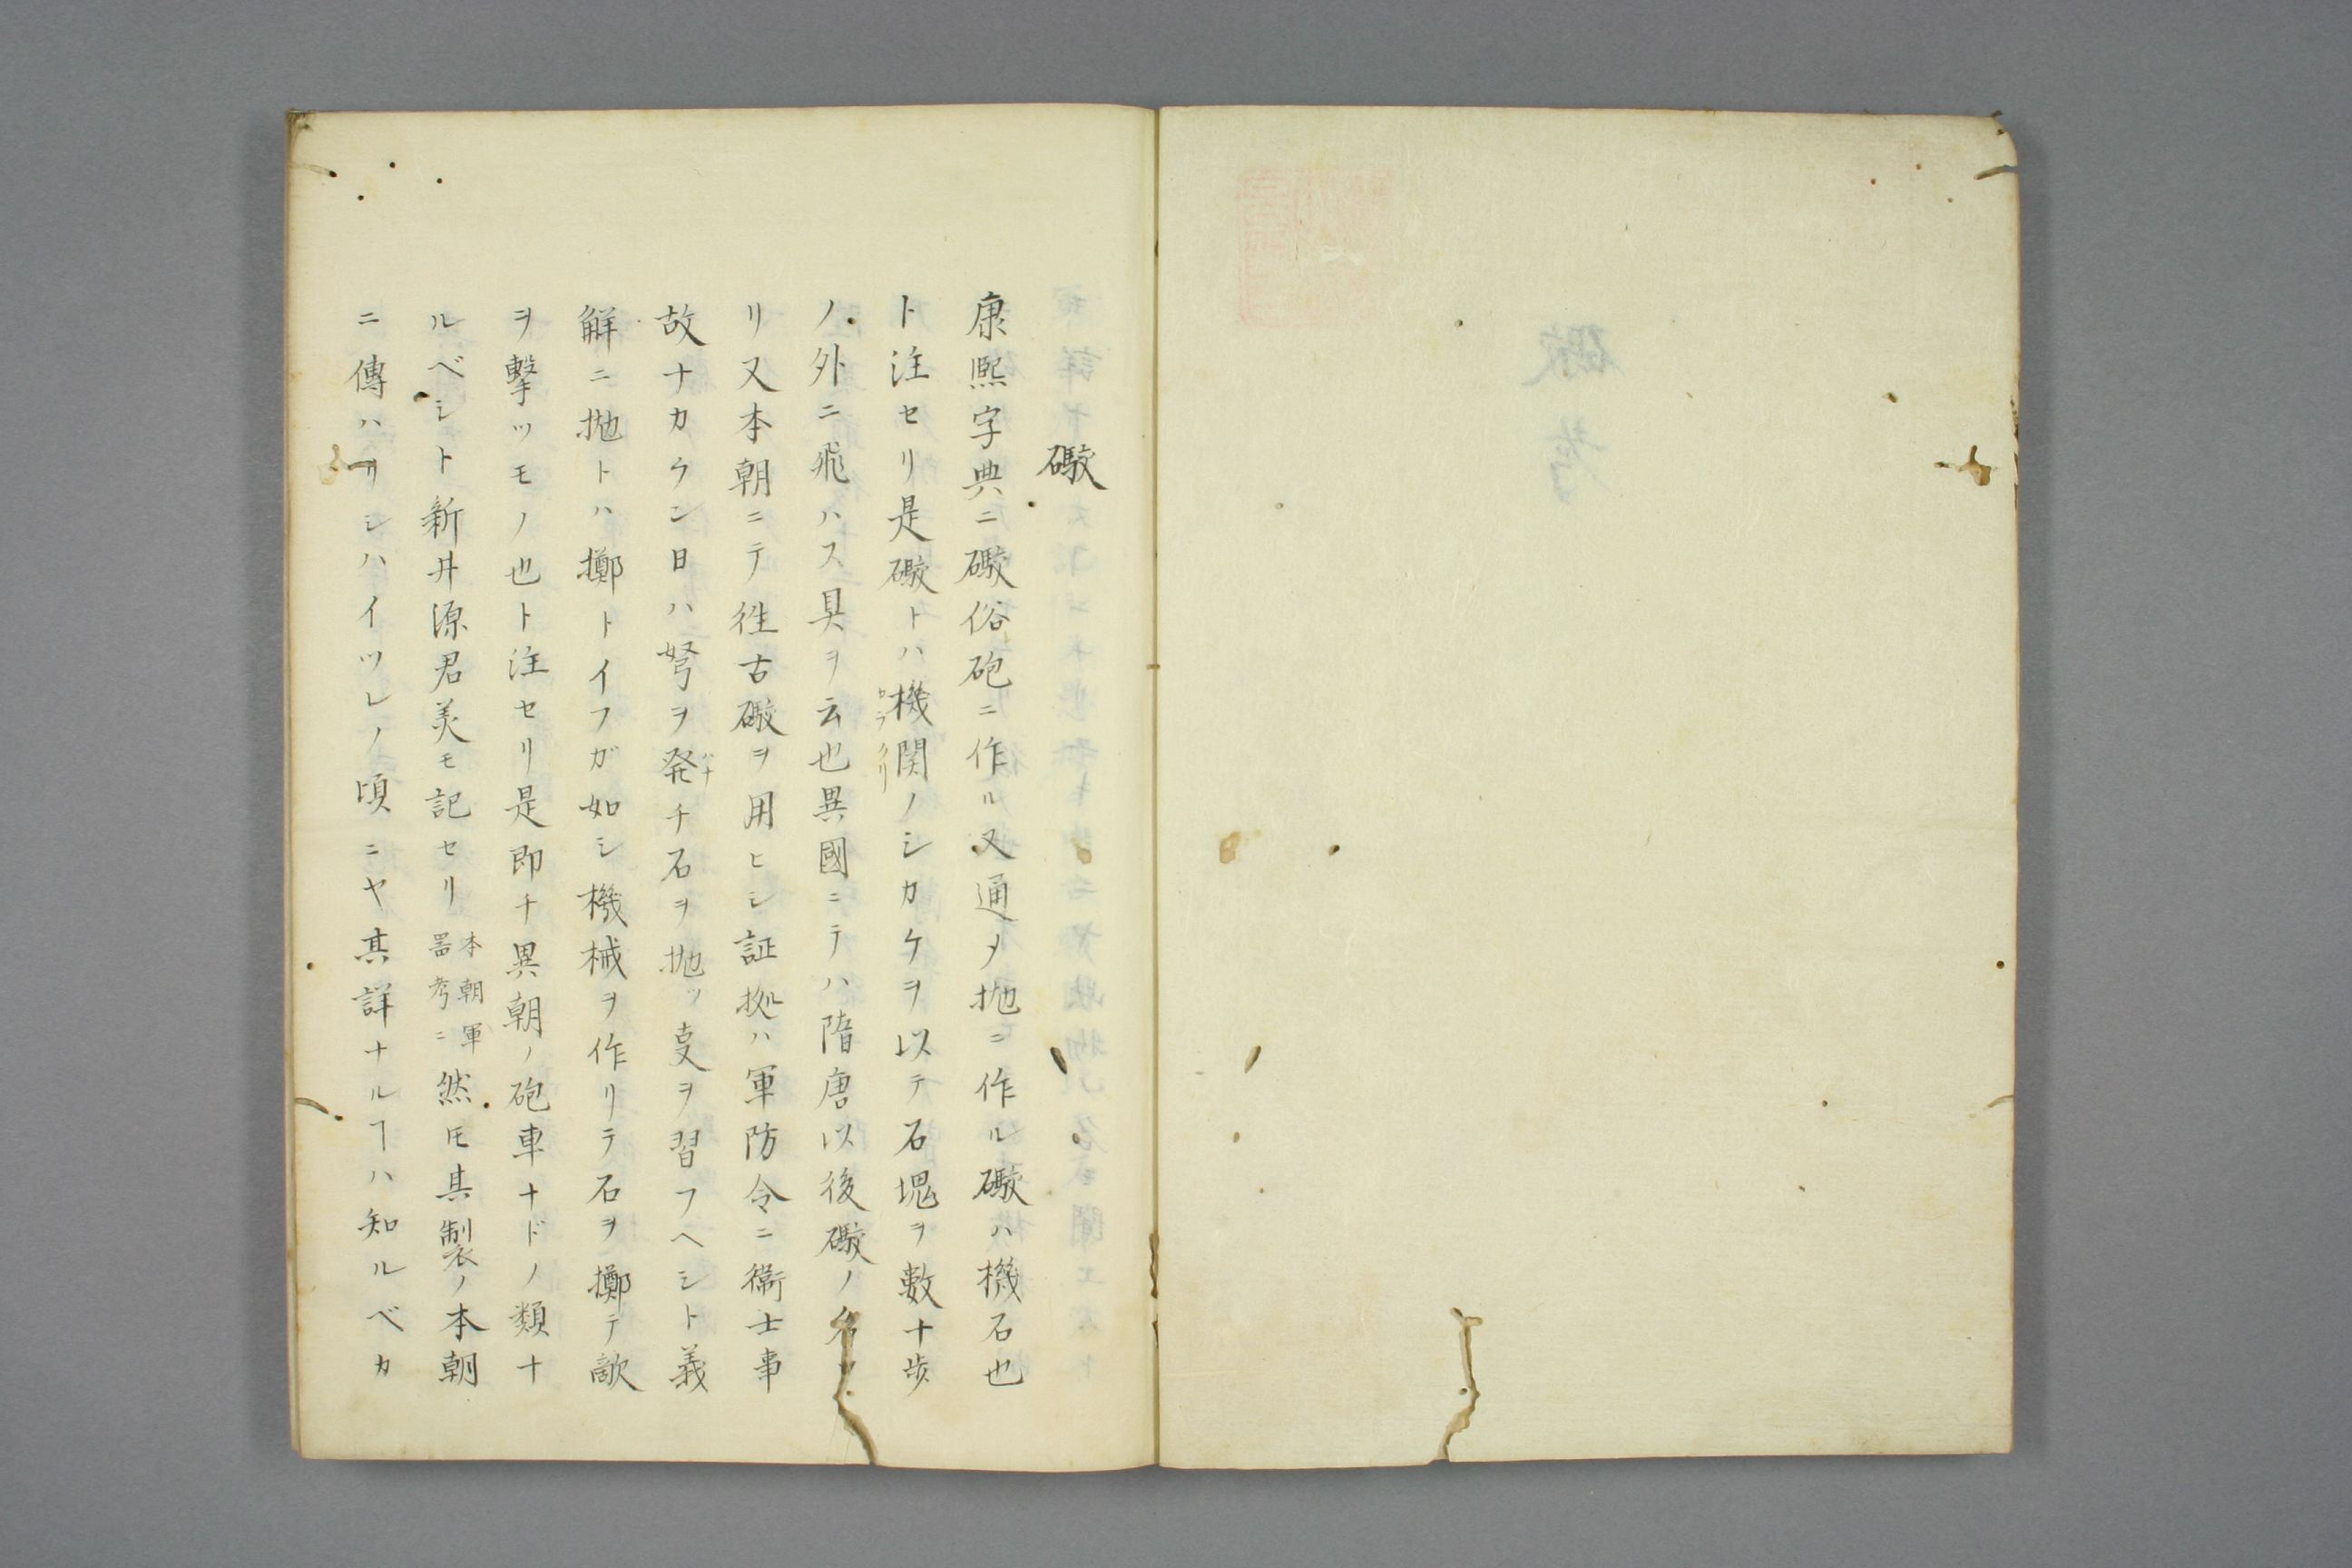 礮
康熙字典ニ礮俗砲ニ作ル又通メ抛ニ作ル礮ハ機石也
ト注セリ是礮トハ機関ノシカケヲ以テ石塊ヲ數十歩
ノ外ニ飛ハス具ヲ云也異國ニテハ隋唐以後礮ノ名ア
リ又本朝ニテ徃古礮ヲ用ヒシ証拠ハ軍防令ニ衞士事
故ナカラン日ハ弩ヲ発チ石ヲ抛ツ叓ヲ習フヘシト義
解ニ抛トハ擲トイフガ如シ機械ヲ作リテ石ヲ擲テ敵
ヲ撃ツモノ也ト注セリ是即チ異朝ノ砲車ナドノ類ナ
ルベシト新井源君美モ記セリ本朝軍器考ニ然㪽其製ノ本朝
ニ傳ハリシハイツレノ頃ニヤ其詳ナルヿハ知ルベカ